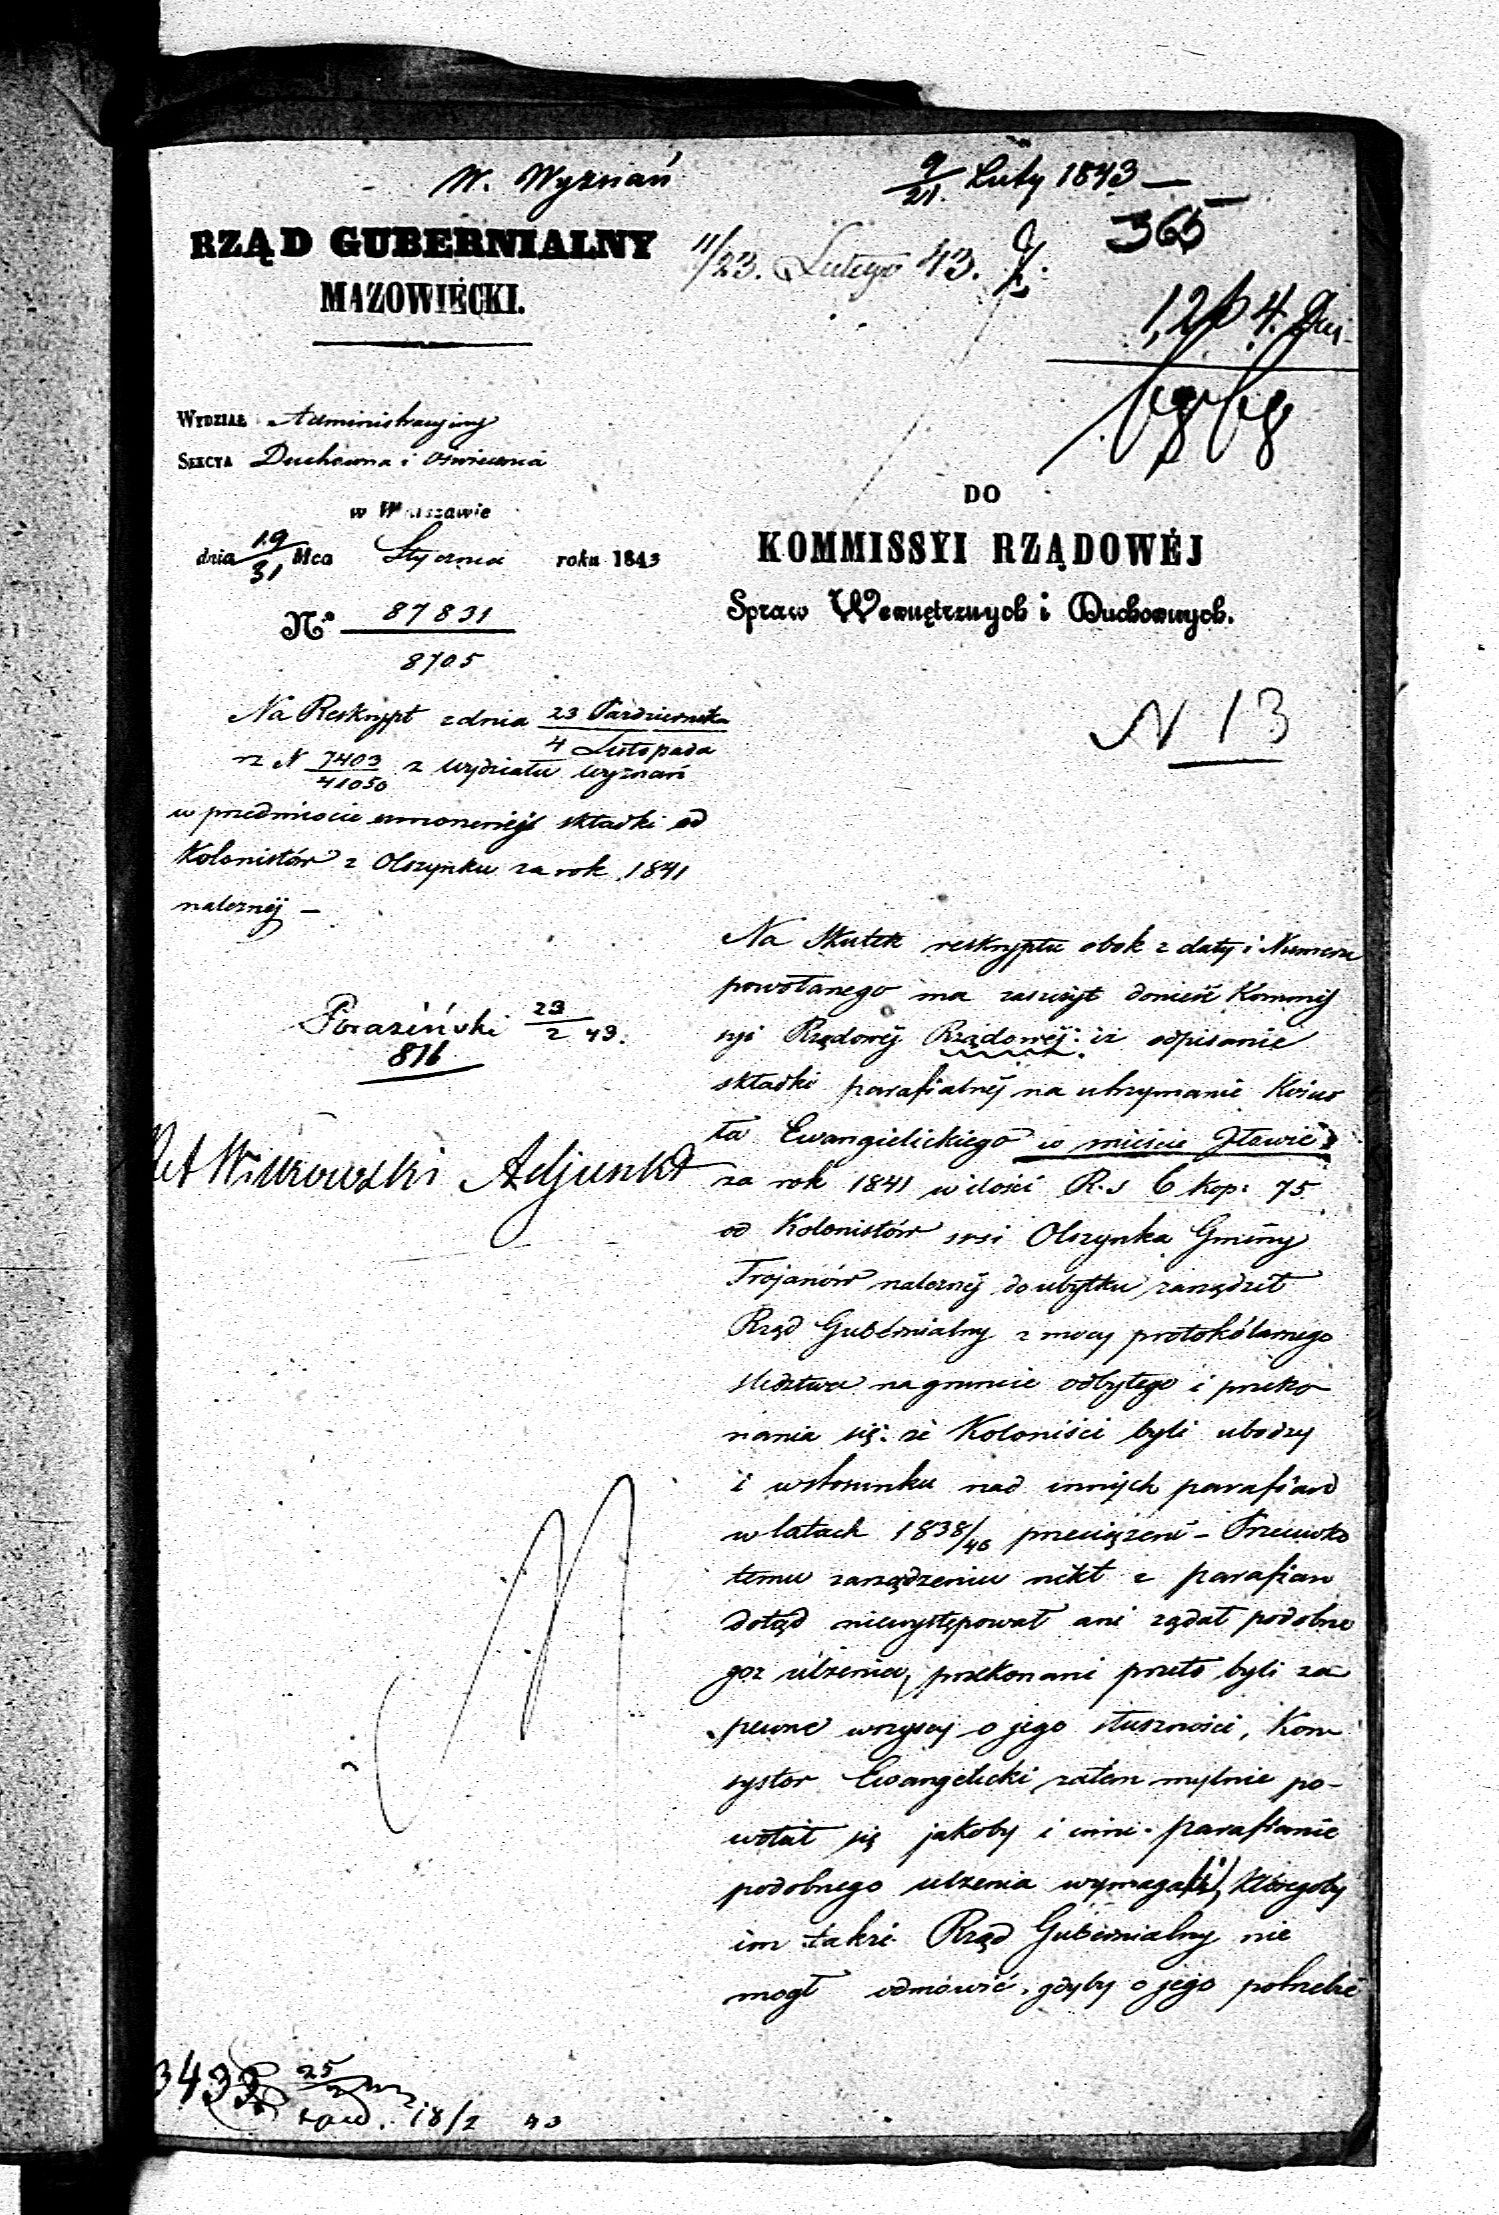 W. Wyznań
9/21. Luty 1843 —
365
RZĄD GUBERNIALNY
MAZOWIECKI.
11/23. Lutego 43.
WYDZIAŁ Administracyiny
SEKCYA Duchowna i Oswiecenia
w Warszawie
dnia 19/31 Mca Stycznia roku 1843
No 87831
8705
DO
KOMMISSYI RZĄDOWÉJ
Spraw Wewnętrznych i Duchownych.
N 13
Na Reskrypt z dnia 23 Pazdziernika
4 Listopada
N 7403/41050 z Wydziału Wyznań
w przedmiocie umorzenia składki od
Kolonistów z Olszynku za rok 1841
należnéj —
23/2 43.
816
Adjunkt
Na Skutek reskryptu obok z daty i Numeru
powołanego ma zaszczyt donieść Kommis
syi Rządowéj Rządowéj: iż odpisanie
składki parafialnéj na utrzymanie Kościo
ła Ewangielickiego w mieście Iławie
za rok 1841 w ilości R.s 6 kop: 75
od Kolonistów wsi Olszynka Gminy
Trojanów należnéj do ubytku zarządził
Rząd Gubernialny z mocy protokólarnego
śledztwa na gruncie odbytego i przeko
nania się: że Koloniści byli ubodzy
i w stosunku nad innych parafian
w latach 1838/40 przeciążeni – Przeciwko
temu zarządzeniu nikt z parafian
dotąd niewystępował ani żądał podobne
goż ulżenia, przekonani przeto byli za
pewne wszyscy o jego słuszności, Kon
systor Ewangelicki zatem mylnie po-
wołał się jakoby i inni parafianie
podobnego ulżenia wymagali, któregoby
im także Rząd Gubernialny nie
mogł odmówić, gdyby o jego potrzebie
3433
25/2
18/2 43